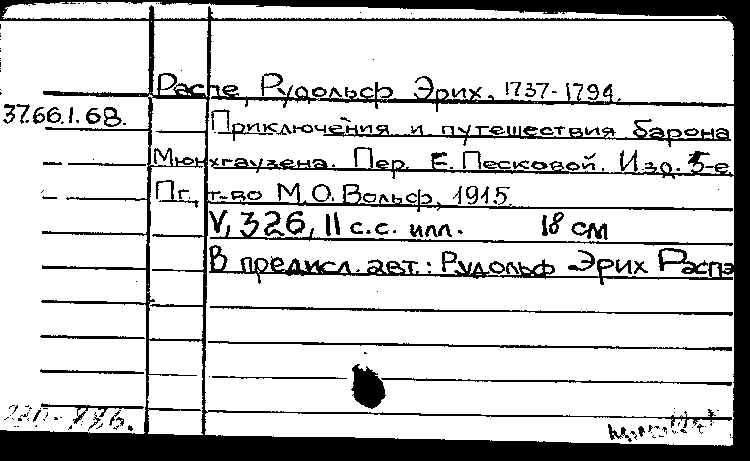 Распе, Рудольф Эрих, 1737-1794.
37.66.1.68.
Приключения и путешествия барона
Мюнхгаузена. Пер. Е. Песковой. Изд. 5-е
Пг., т-во М.О. Вольф, 1915.
V, 326, II с.с. илл. 18 см
В предисл. авт.: Рудольф Эрих Распэ